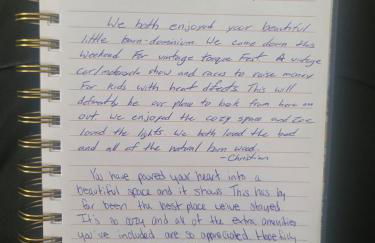 We both enjoyed your beautiful
little barn-dominium We came down this
weekend For vintage torque Fest A vintage
car/motorcycle show and races to raise money
For kids with heart difects. This will
definetly be our place to book from here on
out We enjoyed the cozy space and
loved the lights. We both loved the bed
and all of the natural barn wood.
- Christian
You have poured your heart into a
beautiful space and it shows This has by
far been the best place we've stayed.
It's so cozy and all of the extra amenities
you've included are so appreciated. Hopefully